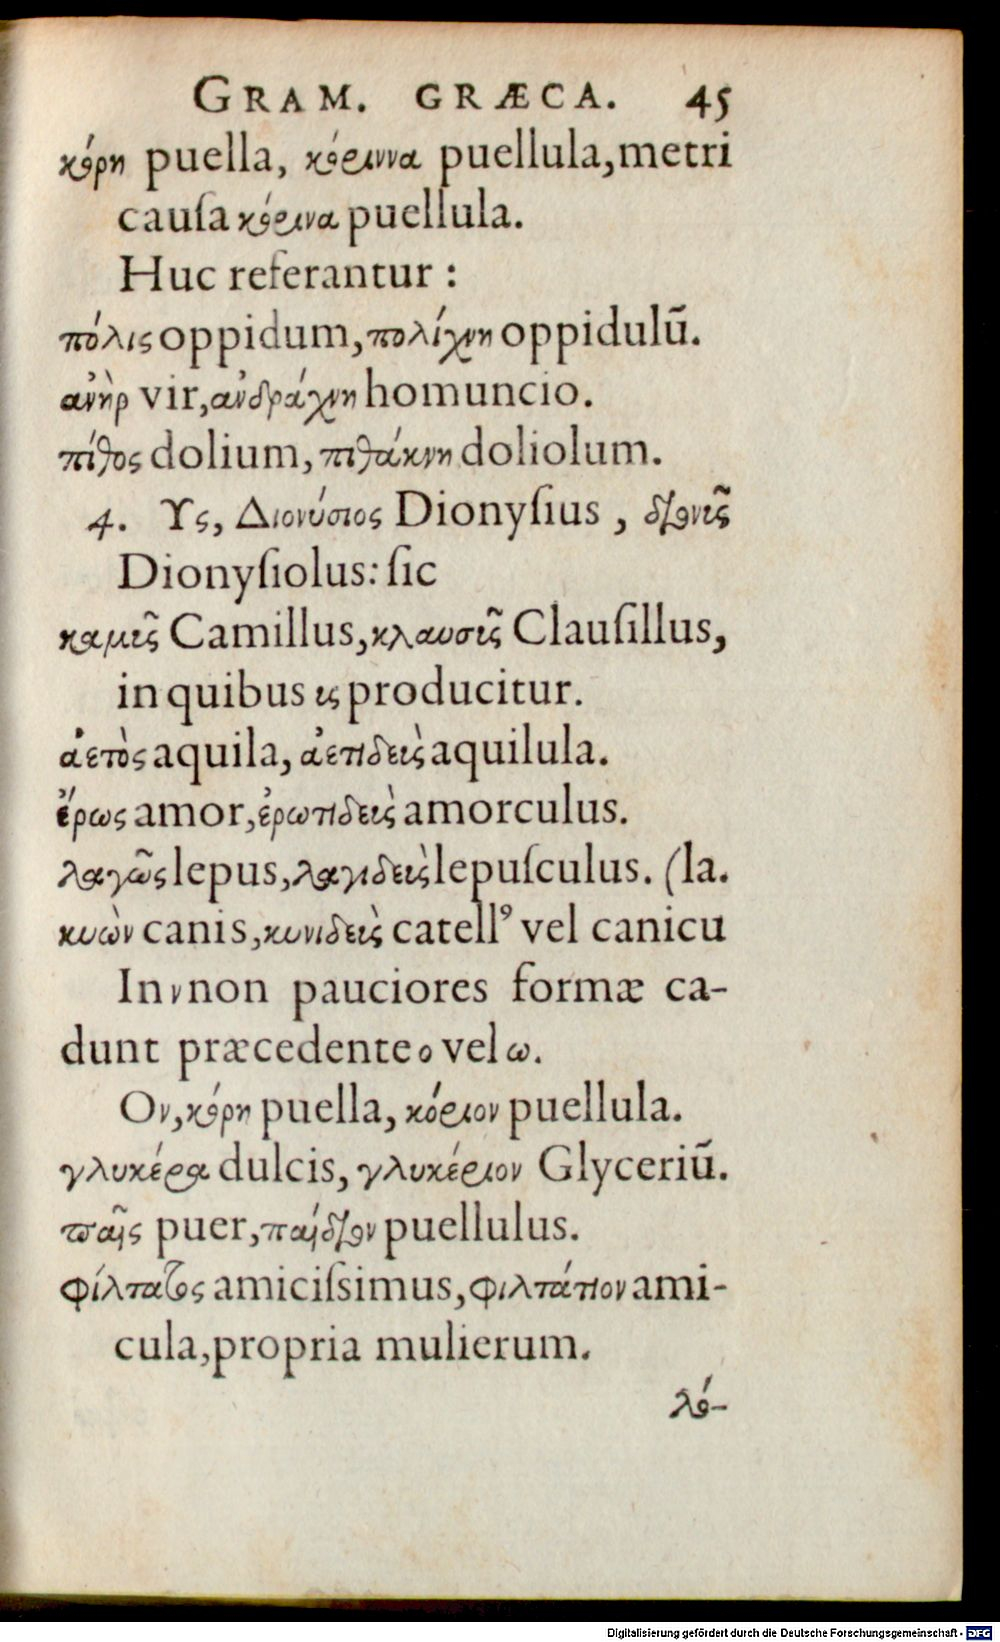 GRAM. GRÆCA. 45
κόρη puella, κόριννα puellula, metri
cauſa κόρινα puellula.
Huc referantur :
πόλις oppidum, πολίχνη oppidulũ.
ἀνὴρ vir, ἀνδράχνη homuncio.
πίθος dolium, πιθάκνη doliolum.
4. Υς, Διονύσιος Dionyſius , διονῦς
Dionyſiolus: ſic
καμῦς Camillus, κλαυσῦς Clauſillus,
in quibus υς producitur.
ἀετὸς aquila, ἀετιδεὺς aquilula.
ἔρως amor, ἐρωτιδεὺς amorculus.
λαγῶς lepus, λαγιδεὺς lepuſculus. (la.
κυὼν canis, κυνιδεὺς catellꝰ vel canicu
In ν non pauciores formæ ca-
dunt præcedente ο vel ω.
Ον, κόρη puella, κόριον puellula.
γλυκέρα dulcis, γλυκέριον Glyceriũ.
παῖς puer, παίδιον puellulus.
φίλτατος amiciſsimus, φιλτάτιον ami-
cula, propria mulierum.
λό-
Digitalisierung gefördert durch die Deutsche Forschungsgemeinschaft - DFG